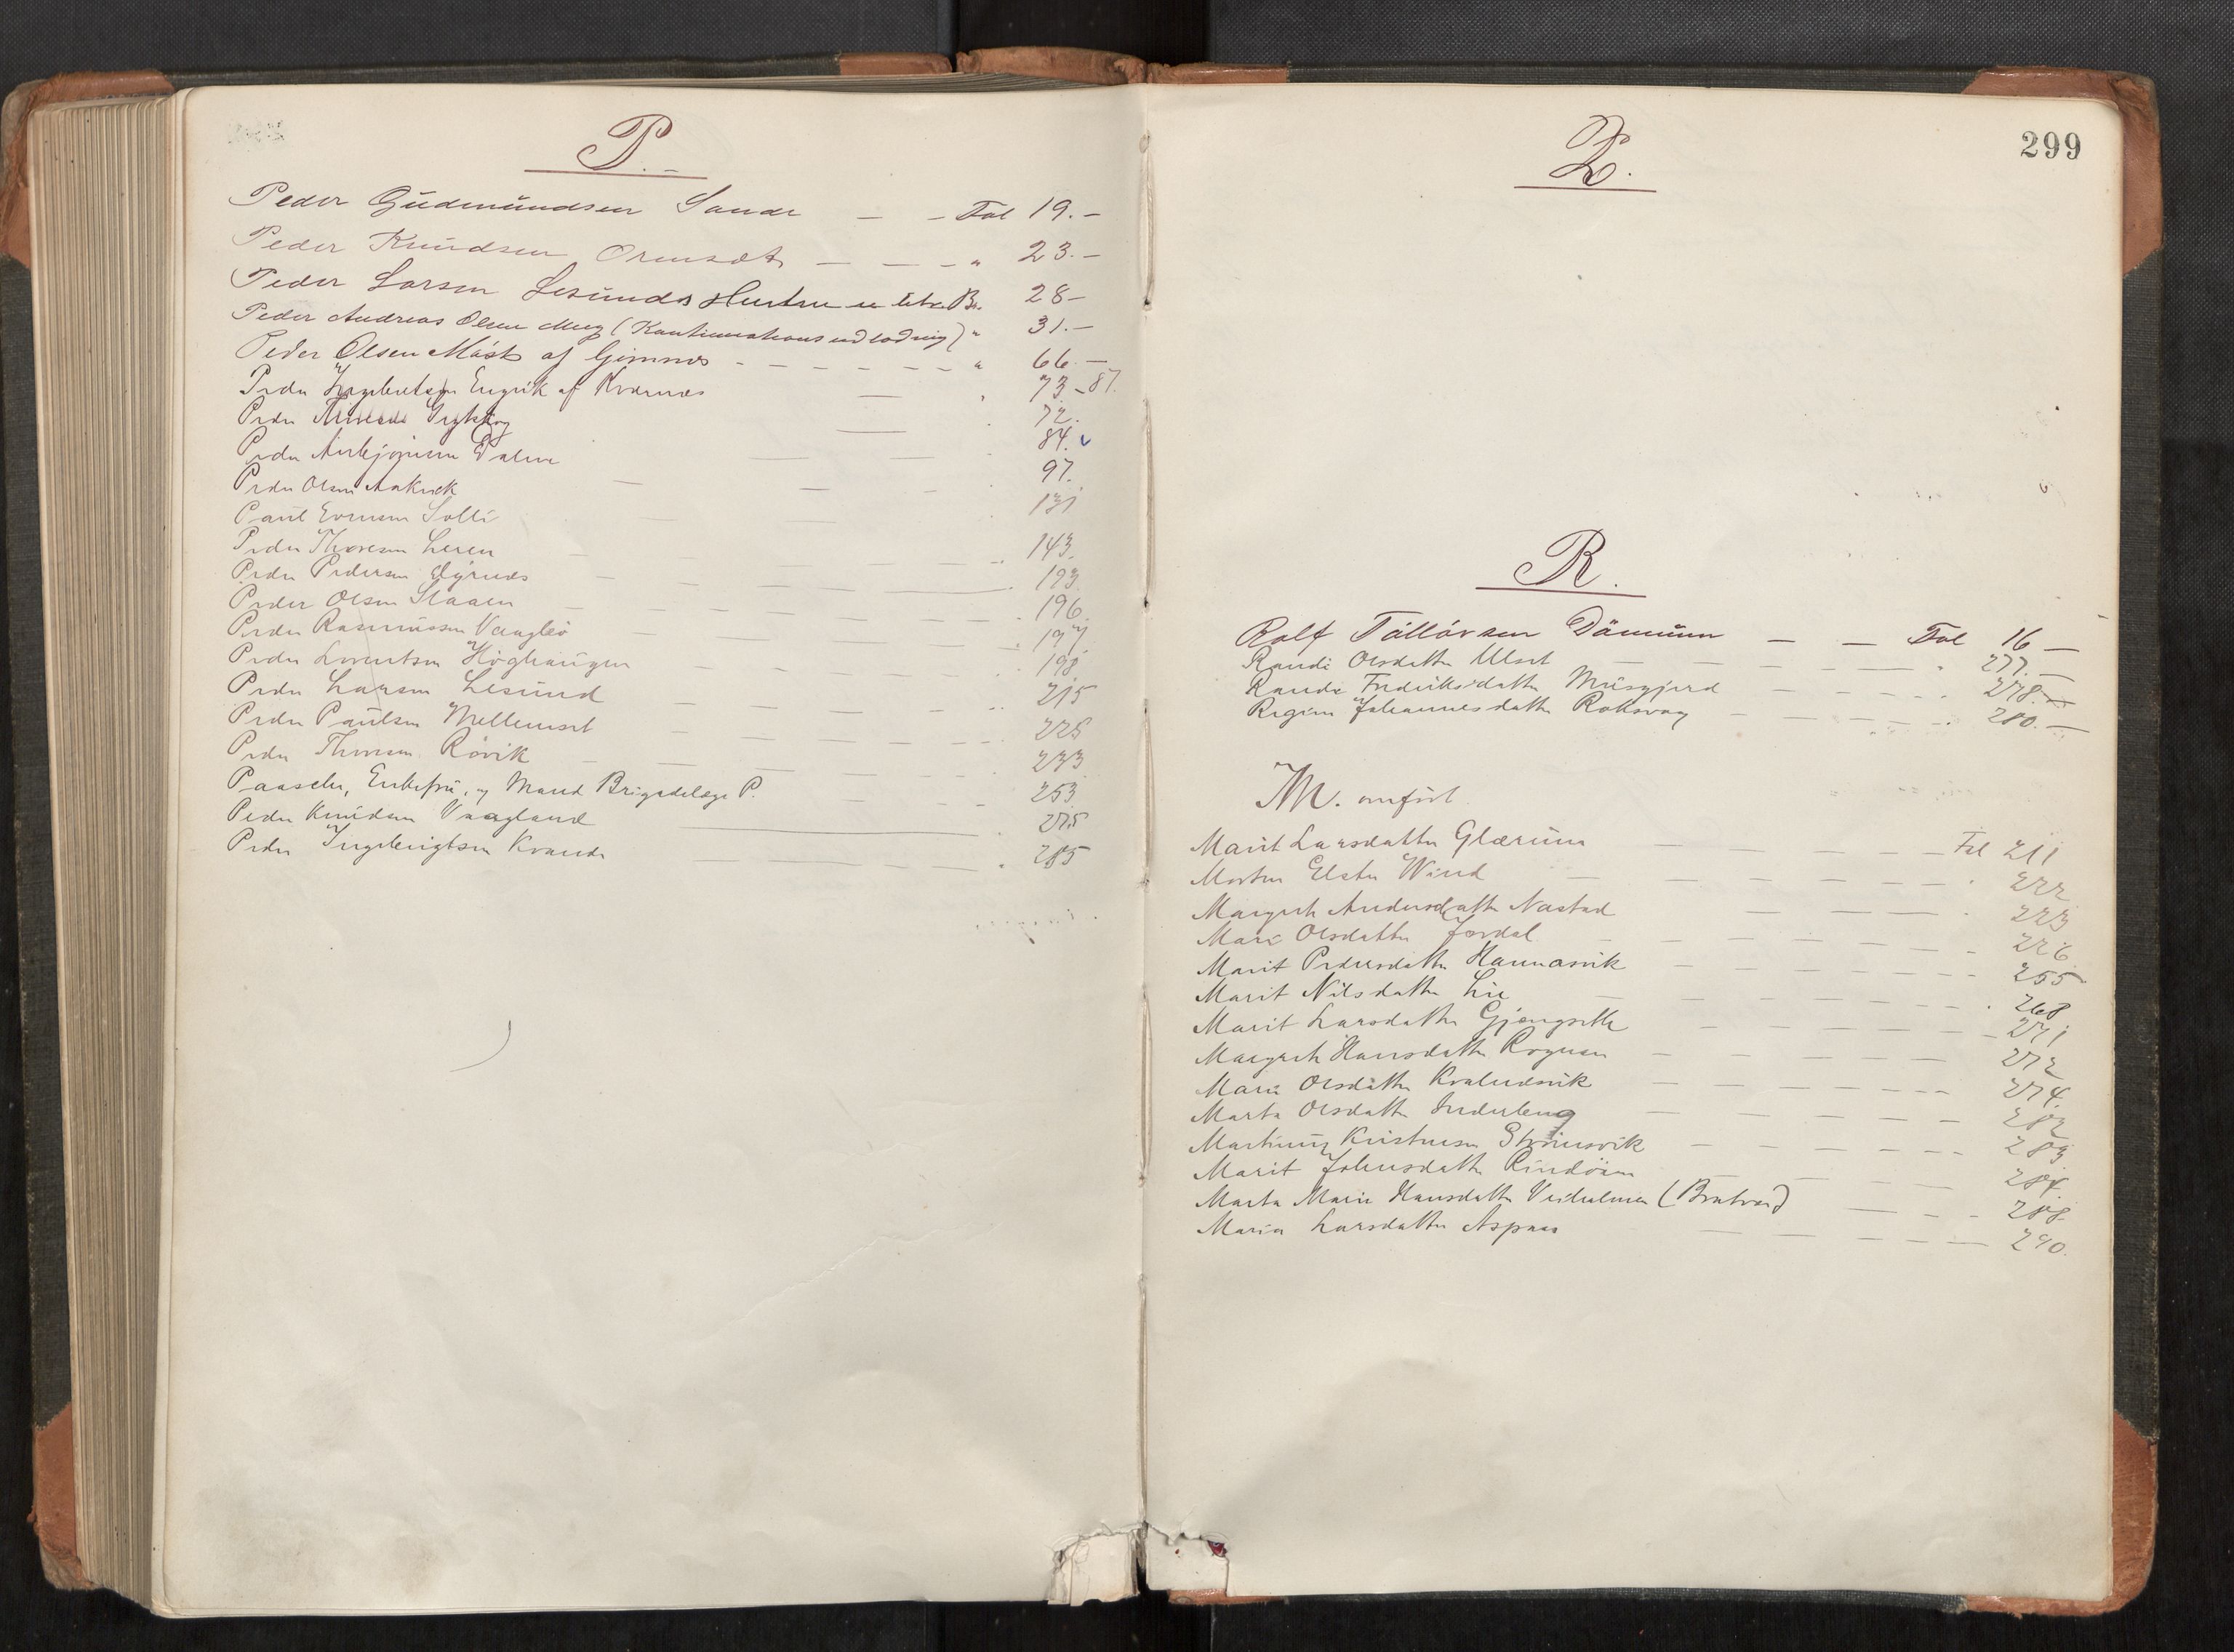 P.
Peder Gudmundsen Sande Fol 19.
Peder Knudsen Ormsæt " 23.
Peder Larsen Lesunds Hustru 28
Peder Andreas Olsen Mag (Kautionations udlodning) " 31.
Peder Olsen Mask af Gimnæs " 66.
Peder Ingebretsen Engvik af Kværnæs 73 - 87.
Peder 72.
Peder Arnbjørnsen Dalen 84.
Peder Olsen Aakvik 97.
Paul Evensen Solli 131
Peder Thoresen Leren 143.
Peder Pedersen Dyrnæs 193
Peder Olsen Staaen 196.
Peder Rasmussen Vaagbø 197
Peder Lorentsen Høghaugen 198
Peder Larsen Lesund 215
Peder Paulsen Mellemset 225
Peder Thoresen Røvik 233
Paasche, Enkefru, og Mand Brigadelæge P. 253
Peder Knudsen Vaagland 275
Peder Ingebrigtsen Kvande 285
299
Q.
R.
Rolf Tollövsen Dömmen Fol 16
Randi Olsdatter Ulset 277.
Randi Fredriksdatter Meisgjerd 278.
Regine Johannesdatter Roksvag 280.
M. omført
Marit Larsdatter Glærum Fol 211
Morten Elster Wiud 222
Margreth Andersdatter Nastad 223
Mari Olsdatter Jordal 226
Marit Pedersdatter Hannasvik 255
Marit Nilsdatter Lie 268
Marit Larsdatter Gjengsette 271
Margreth Hansdatter Rognsen 272
Mari Olsdatter Kvalurdsvik 274
Marta Olsdatter Inderberg 282
Martinus Kristensen Strømsvik 283
Marit Johnsdatter Rindøien 284
Marta Marie Hansdatter Veidholmen (Bratvær) 288
Maria Larsdatter Aspaas 290.